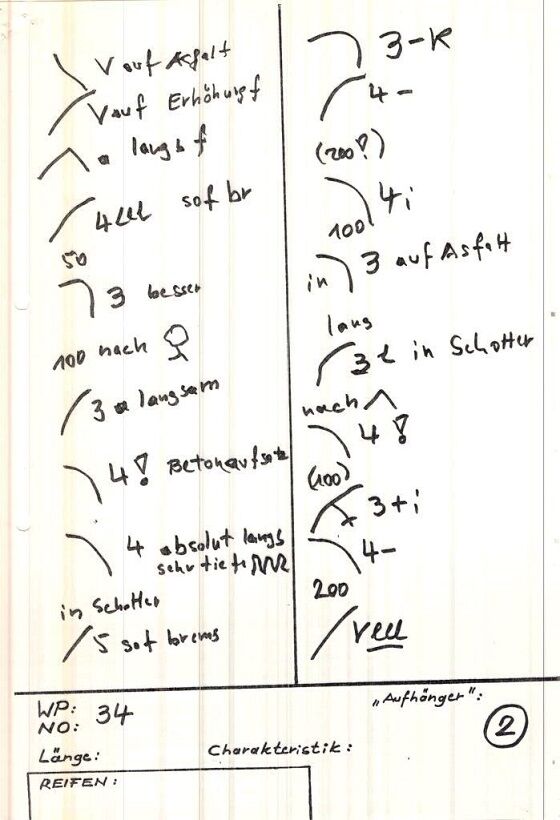 V auf Asfalt
V auf Erhöhung f
a langs f
4 sof br
50
3 besser
100 nach
3 a langsam
4! Betonaufsatz
4 absolut langs
sehr tiefe
in Schotter
5 sof brems
3-K
4-
(200?)
4i
100
in 3 auf Asfalt
lang
3 l in Schotter
nach
4!
(100)
3+i
4-
200
V
WP: 34
NO:
„Aufhänger":
2
Länge:
Charakteristik:
REIFEN: